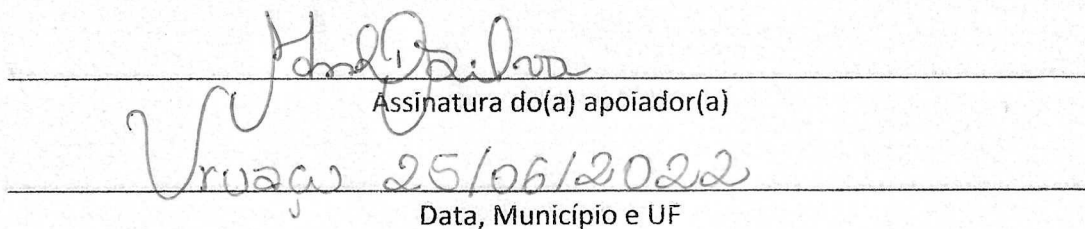 Silva
Assinatura do(a) apoiador(a)
Uruaçu 25/06/2022
Data, Município e UF